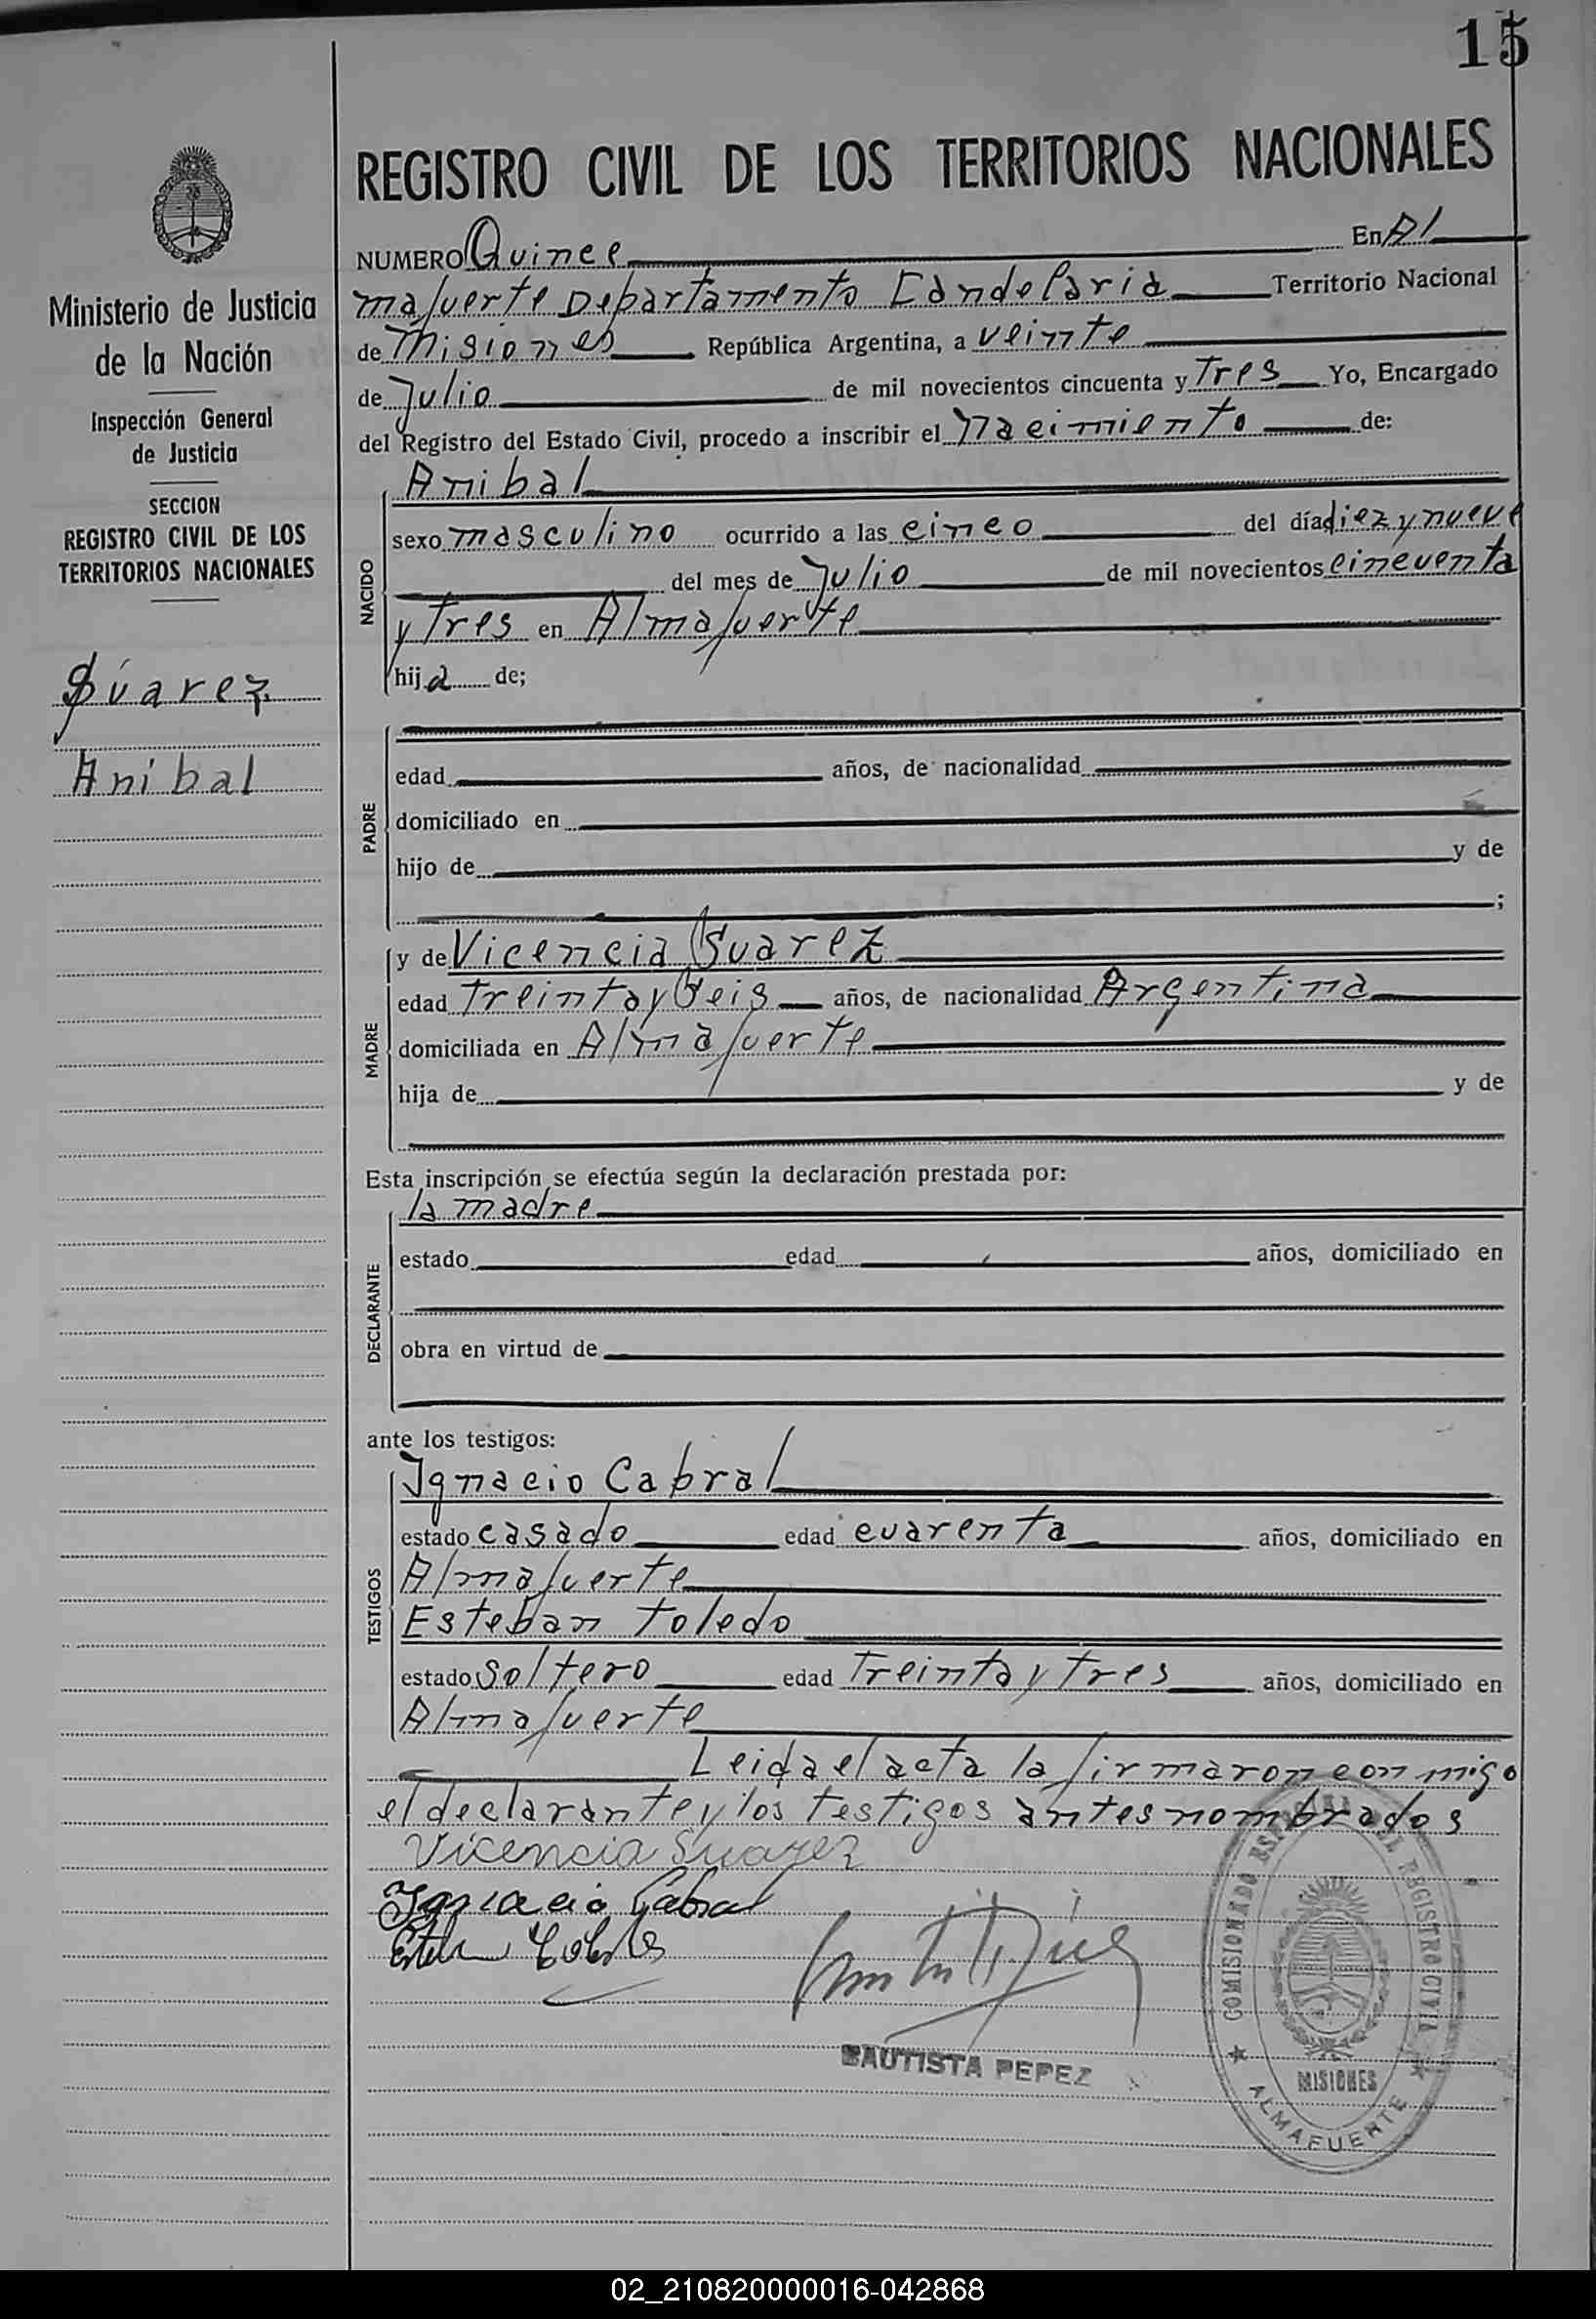 15
REGISTRO CIVIL DE LOS TERRITORIOS NACIONALES
Ministerio de Justicia
de la Nación
Inspección General
de Justicia
SECCION
REGISTRO CIVIL DE LOS
TERRITORIOS NACIONALES
Súarez
Anibal
NUMERO Quince En Al
mafuerte Departamento Candelaria Territorio Nacional
de Misiones República Argentina, a veinte
de Julio de mil novecientos cincuenta y Tres Yo, Encargado
del Registro del Estado Civil, procedo a inscribir el Nacimiento de:
NACIDO
Anibal
sexo masculino ocurrido a las cinco del día diez y nueve
del mes de Julio de mil novecientos cincuenta
y Tres en Almafuerte
hijo de;
PADRE
edad años, de nacionalidad
domiciliado en
hijo de y de
;
MADRE
y de Vicencia Suarez
edad Treinta y Seis años, de nacionalidad Argentina
domiciliada en Almafuerte
hija de y de
Esta inscripción se efectúa según la declaración prestada por:
DECLARANTE
la madre
estado edad años, domiciliado en
obra en virtud de
ante los testigos:
TESTIGOS
Ignacio Cabral
estado casado edad cuarenta años, domiciliado en
Almafuerte
Esteban Toledo
estado Soltero edad Treinta y Tres años, domiciliado en
Almafuerte
Leida el acta la firmaron conmigo
el declarante y los testigos antes nombrados
Vicencia Suarez
Ignacio Cabral
BAUTISTA PEPEZ
COMISIONADO ESPECIAL DEL REGISTRO CIVIL
MISIONES
ALMAFUERTE
02_210820000016-042868